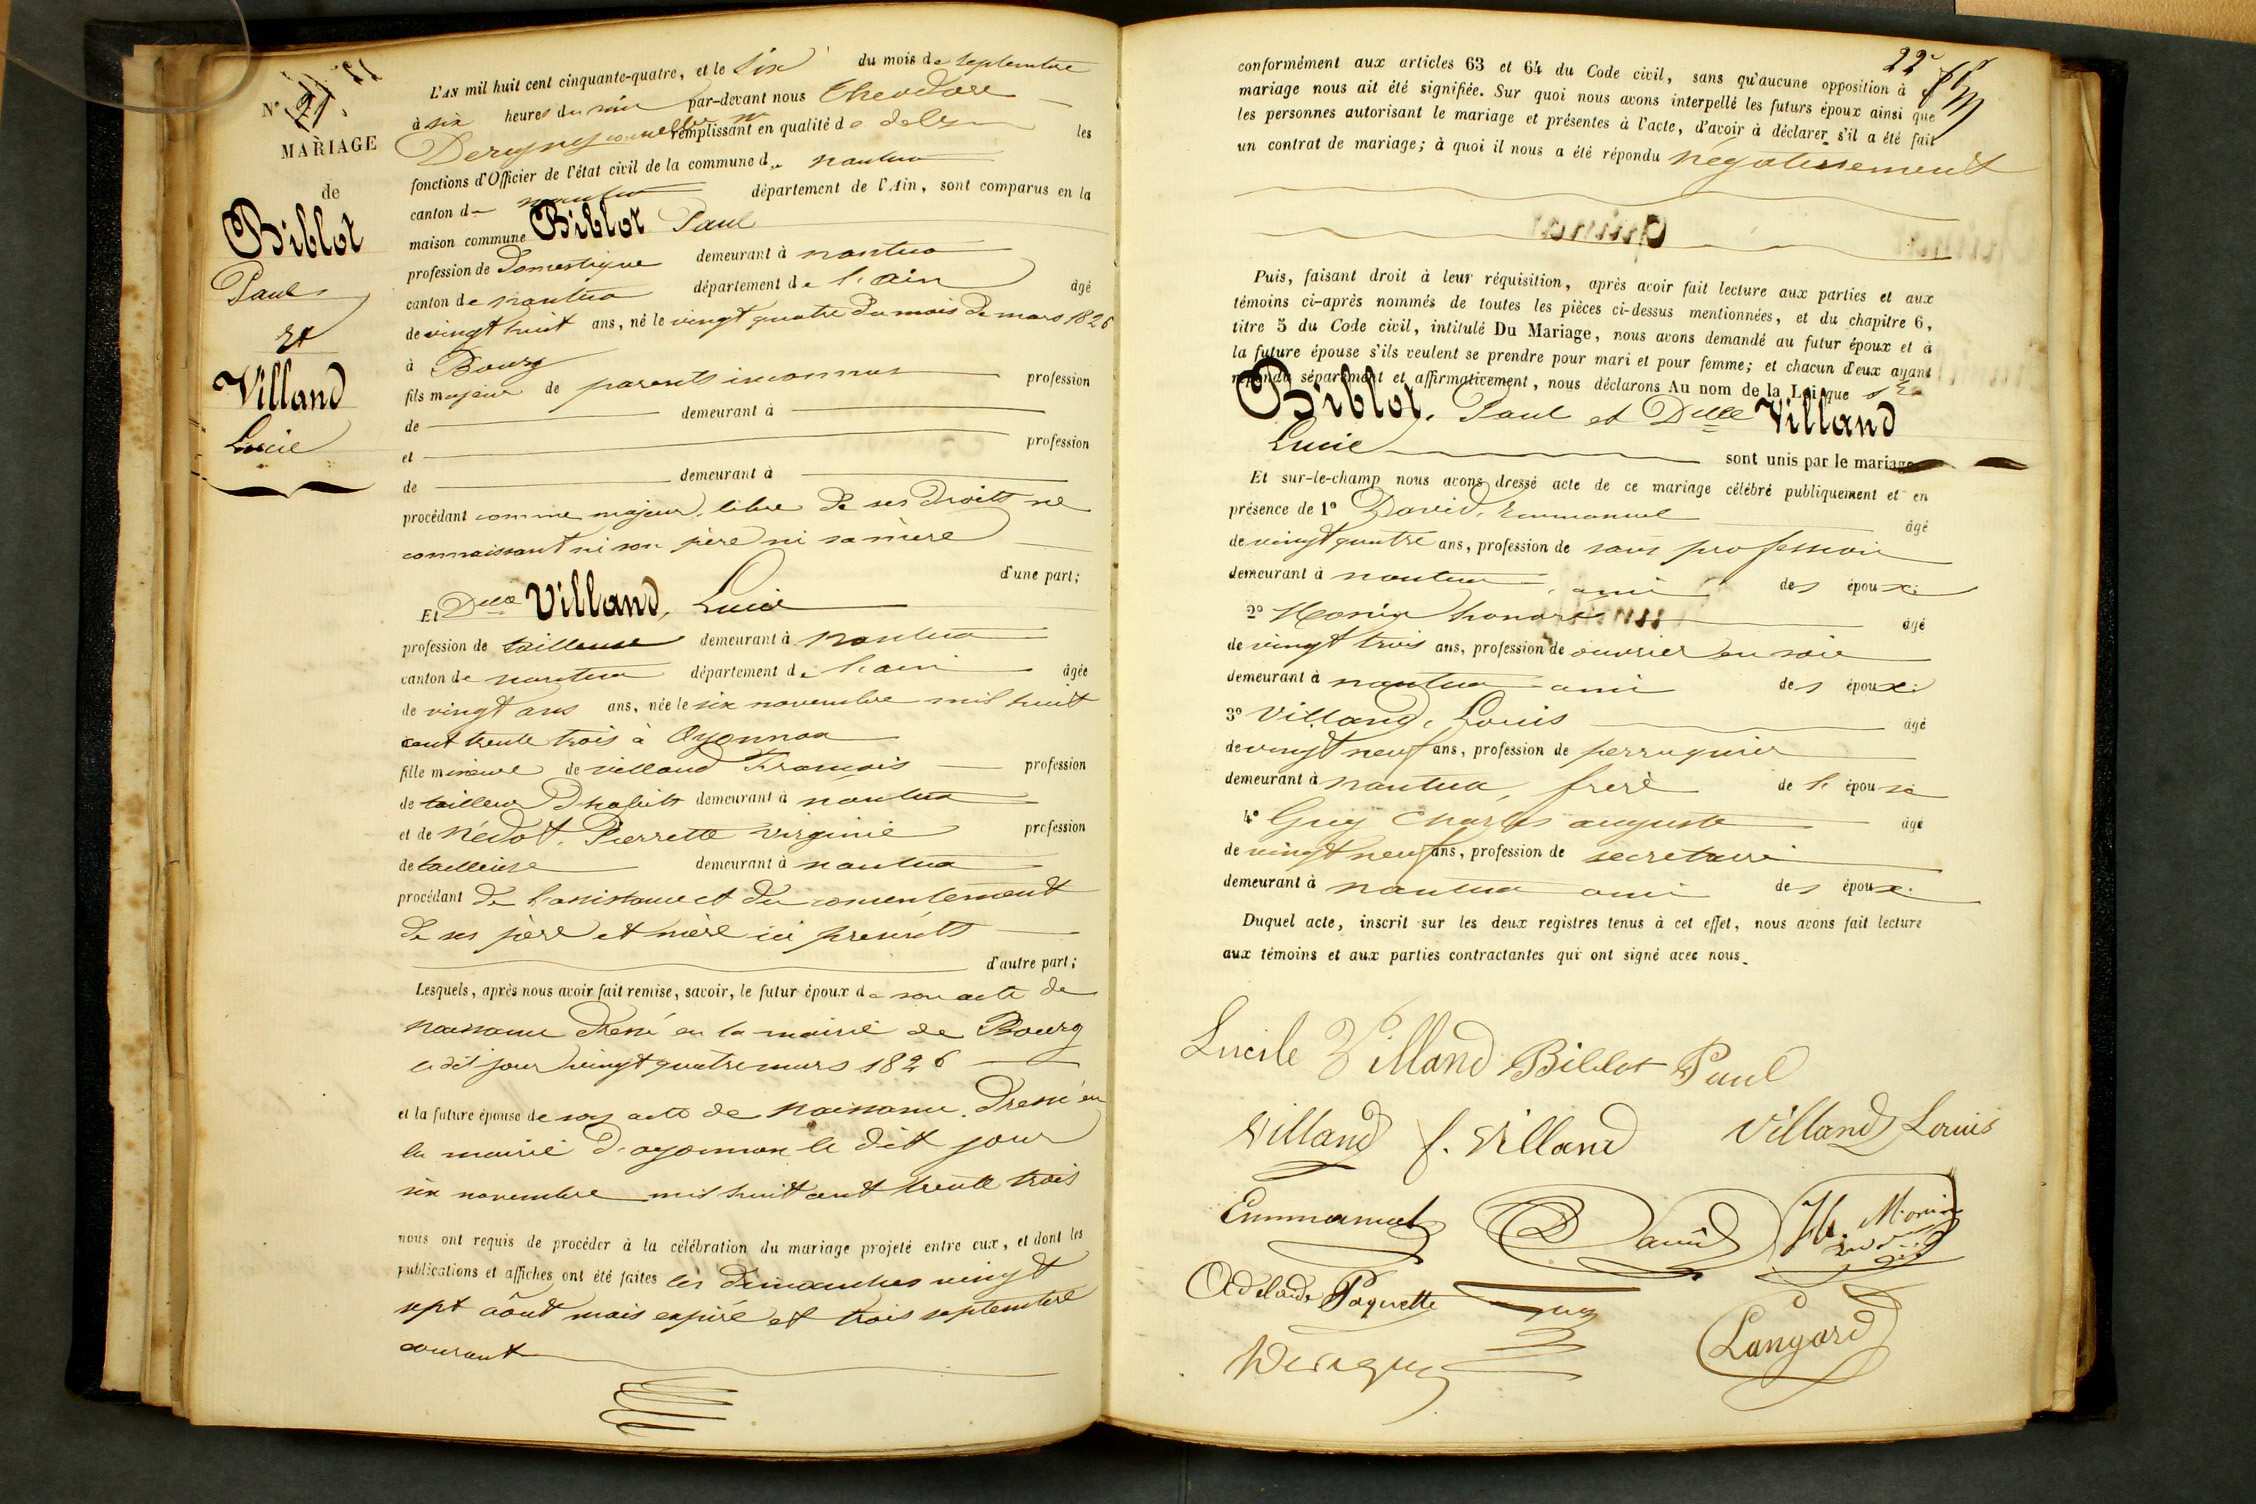 N° 21
MARIAGE
de
Biblot
Paul
Et
Villand
Lucie
L'AN mil huit cent cinquante-quatre, et le six du mois de septembre
à six heures du soir par-devant nous Théodore
remplissant en qualité de
les
fonctions d'Officier de l'état civil de la commune de nantua
canton de nantua département de l'Ain, sont comparus en la
maison commune Biblot Paul
profession de domestique demeurant à nantua
canton de nantua département de l'ain âgé
de vingt huit ans, né le vingt quatre du mois de mars 1826
à Bourg
fils majeur de parents inconnus profession
de demeurant à
et profession
de demeurant à
procédant comme majeur, libre de ses droits ne
connaissant ni son père ni sa mère
d'une part;
Et Delle Villand, Lucie
profession de tailleuse demeurant à nantua
canton de nantua département de l'ain âgée
de vingt ans ans, née le six novembre mil huit
cent trente trois à Oyonnax
fille mineure de villand François profession
de tailleur d'habits demeurant à nantua
et de Nédot, Pierrette virginie profession
de tailleuse demeurant à nantua
procédant de l'assistance et du consentement
de ses père et mère ici présents
d'autre part;
Lesquels, après nous avoir fait remise, savoir, le futur époux de son acte de
naissance dressé en la mairie de Bourg
le dit jour vingt quatre mars 1826
et la future épouse de son acte de naissance, dressé en
la mairie d'oyonnax le dit jour
six novembre mil huit cent trente trois
nous ont requis de procéder à la célébration du mariage projeté entre eux, et dont les
publications et affiches ont été faites les dimanches vingt
sept août mois expiré et trois septembre
courant
22e
conformément aux articles 63 et 64 du Code civil, sans qu'aucune opposition à
mariage nous ait été signifiée. Sur quoi nous avons interpellé les futurs époux ainsi que
les personnes autorisant le mariage et présentes à l'acte, d'avoir à déclarer s'il a été fait
un contrat de mariage; à quoi il nous a été répondu négativement
Puis, faisant droit à leur réquisition, après avoir fait lecture aux parties et aux
témoins ci-après nommés de toutes les pièces ci-dessus mentionnées, et du chapitre 6,
titre 5 du Code civil, intitulé Du Mariage, nous avons demandé au futur époux et à
la future épouse s'ils veulent se prendre pour mari et pour femme; et chacun d'eux ayant
répondu séparément et affirmativement, nous déclarons Au nom de la Loi que
Biblot, Paul et Delle Villand
Lucie sont unis par le mariage
Et sur-le-champ nous avons dressé acte de ce mariage célébré publiquement et en
présence de 1° David, Emmanuel âgé
de vingt quatre ans, profession de sans profession
demeurant à nantua, ami des époux.
2° Monin honoré âgé
de vingt trois ans, profession de ouvrier en soie
demeurant à nantua ami des époux.
3° Villand, Louis âgé
de vingt neuf ans, profession de perruquier
demeurant à nantua, frère de l'épouse
4° Guy Charles auguste âgé
de vingt neuf ans, profession de secretaire
demeurant à nantua ami des époux.
Duquel acte, inscrit sur les deux registres tenus à cet effet, nous avons fait lecture
aux témoins et aux parties contractantes qui ont signé avec nous.
Lucile Villand Billot Paul
Villand f. Villand Villand Louis
Emmanuel David H. Monin
Adelaide Paquette Guy
Langard